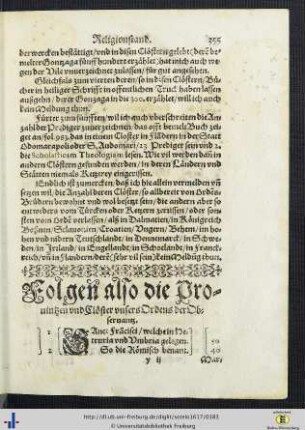 Religionstand.
der wercken bestättigt/ und in disen Clöstern gelebt/ derē be-
melter Gonzaga fünff hundert erzählet/ hat mich auch we-
gen der Vile unverzeichnet zulassen/ für gut angesehen.
Gleichfals zum vierten deren/ so in disen Clöstern/ Bü-
cher in heiliger Schrifft in offentlichen Truck haben lassen
außgehn/ derer Gonzaga in die 300. erzählet/ will ich auch
kein Meldung thun.
Fürter zum fünfften/ will ich auch überschreiten die An-
zahl der Prediger zuverzeichnen/ das offt bemelt Buch zei-
get an fol. 983. das in einem Closter in Flandern in der Statt
Odomarapoli oder S. Audomari/ 23. Prediger sein und 2.
die Scholasticam Theologiam lesen. Wie vil werden dañ in
andern Clöstern gefunden werden/ in deren Ländern und
Stätten niemals Ketzerey eingerissen.
Endlich ist zumercken/ daß ich hie allein vermelden
sey wil/ die Anzahl deren Clöster/ so allbereit von Ordēs
Brüdern bewohnt und wol besetzt sein/ die andern aber so
entweders vom Türcken oder Ketzern zerrissen/ oder son-
sten vom Ordē verlassen/ als in Dalmatien/ in Königreich
Boßnien/ Sclavonien/ Croatien/ Ungern/ Behem/ im ho-
hen und nidern Teutschlandt/ in Dennemarck/ in Schwe-
den/ in Irland/ in Engellande/ in Schotlande/ in Franck-
reich/ uñ in Flandern/ derē sehr vil sein/ kein Meldūg thun.
Folgen also die Pro-
vintzen und Clöster unsers Ordens der Ob-
servantz.
1 Sanct Frācisci/ welche in He-
truria und Umbria gelegen. 50
2 So die Römisch benant. 40
y ij
http://dl.ub.uni-freiburg.de/diglit/sernin1617/0381
© Universitätsbibliothek Freiburg